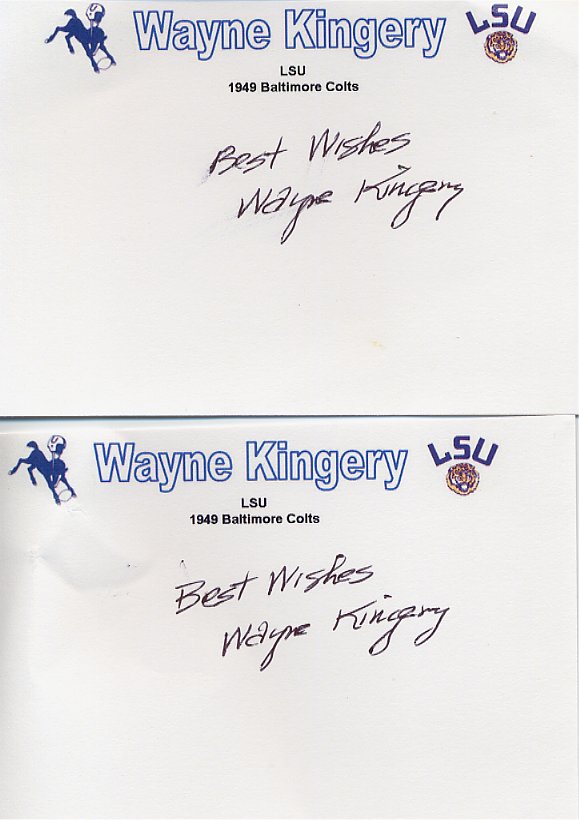 Wayne Kingery
LSU
LSU
1949 Baltimore Colts
Best Wishes
Wayne Kingery
Wayne Kingery
LSU
LSU
1949 Baltimore Colts
Best Wishes
Wayne Kingery